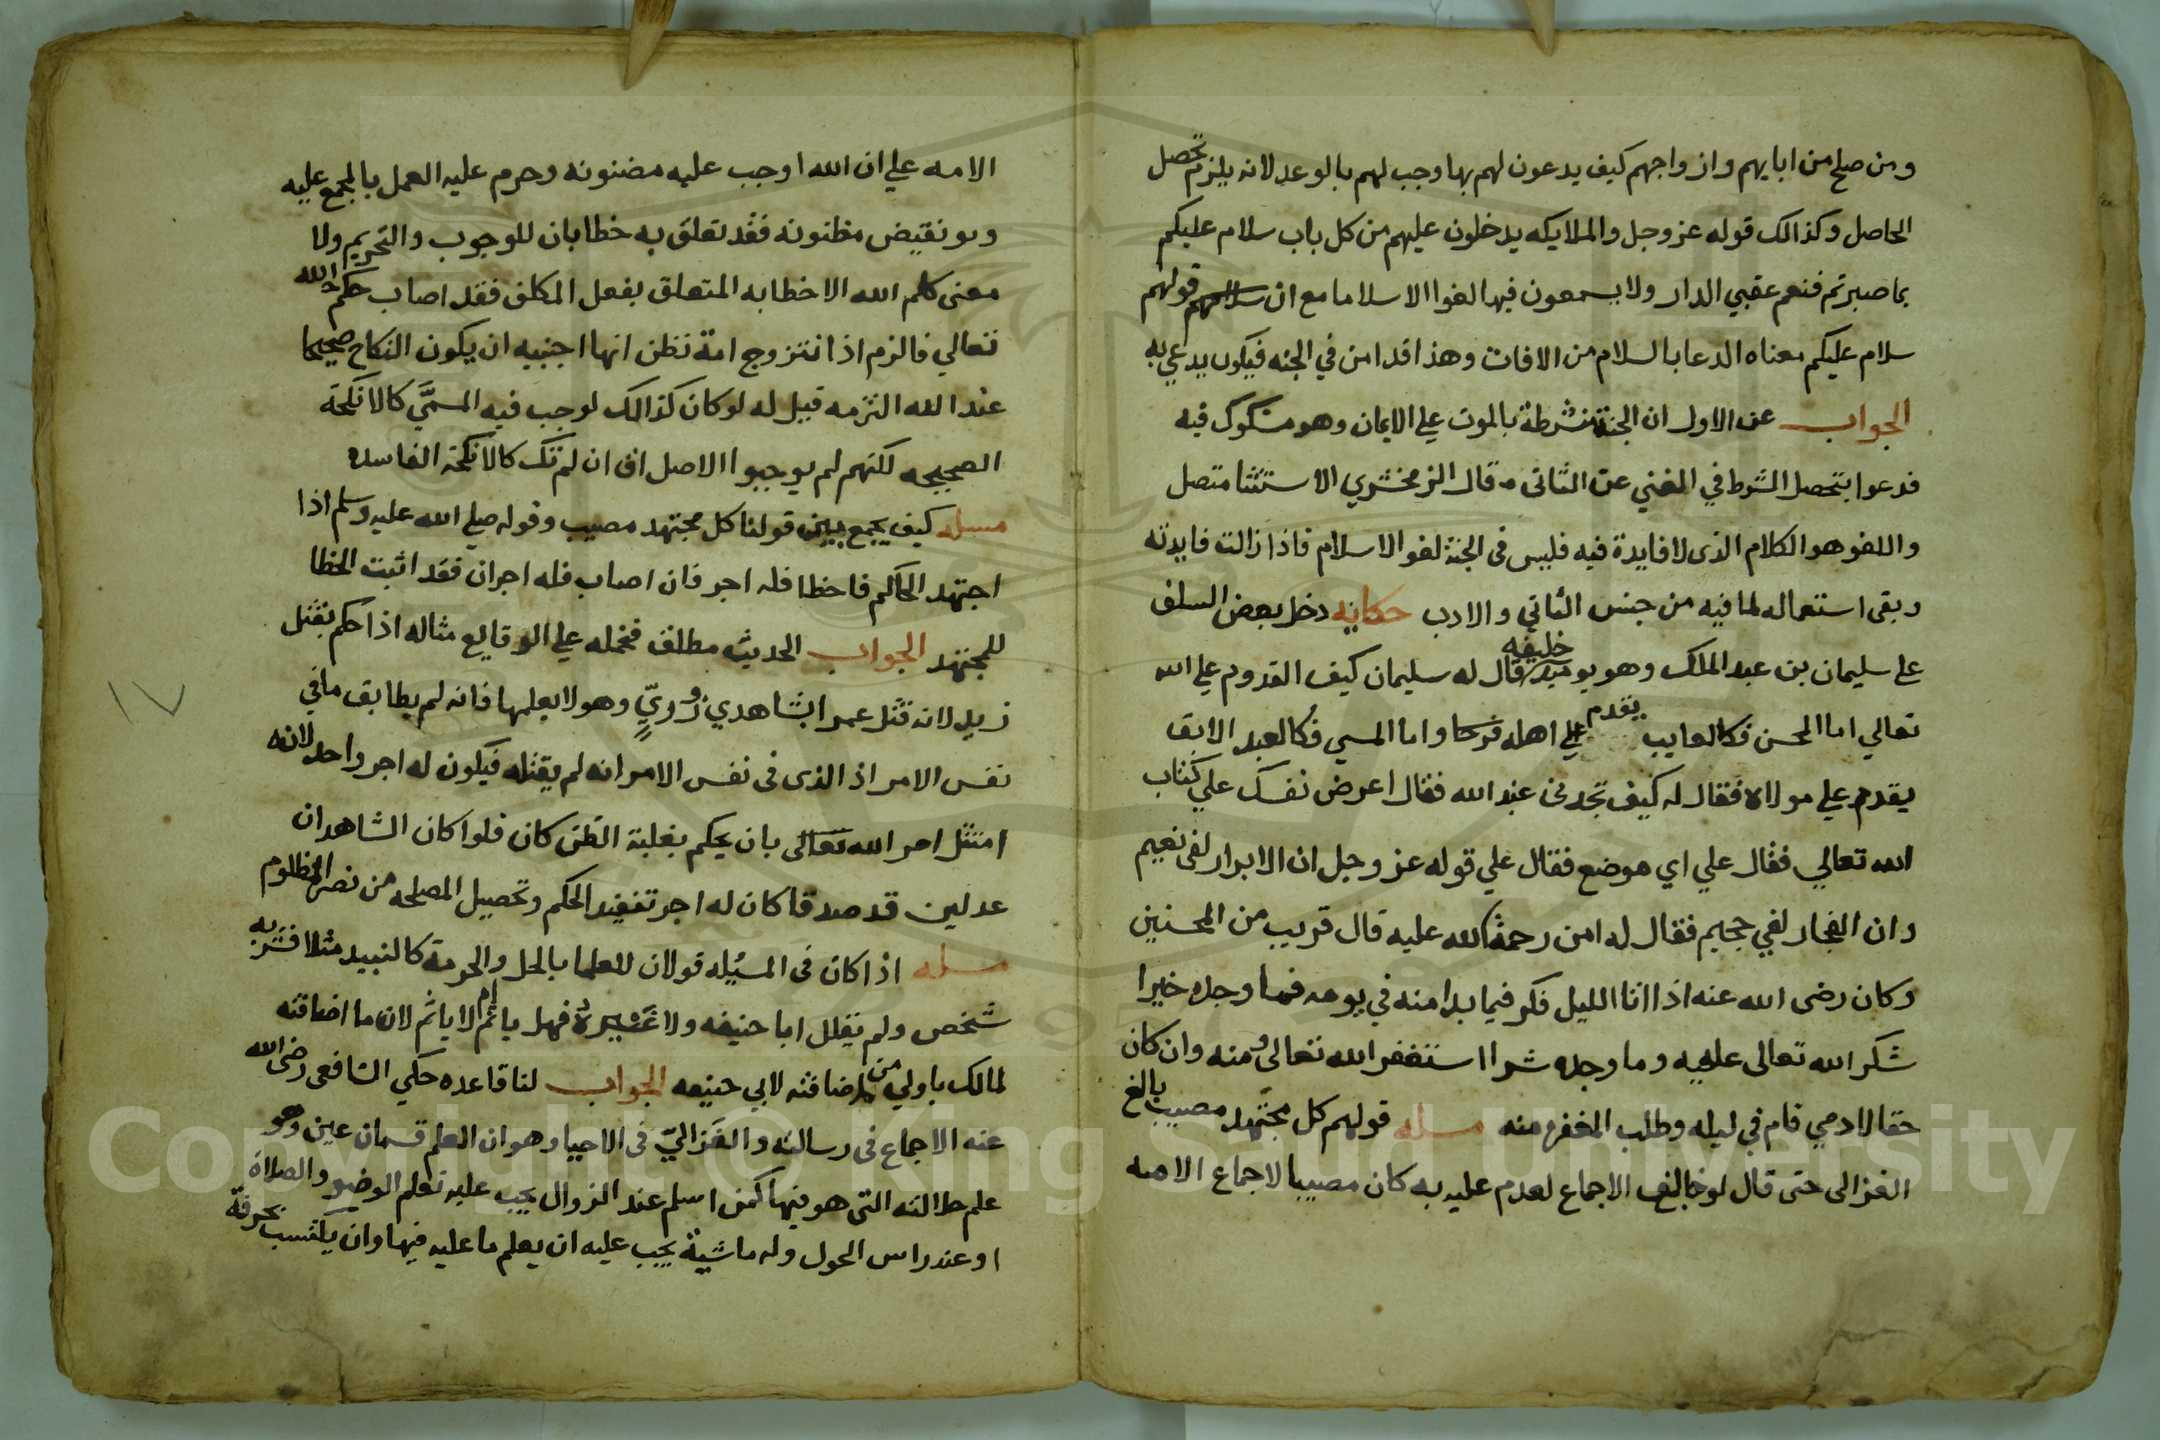 ومن صلح من ابايهم وازواجهم كيف يدعون لهم بها وجب لهم بالوعد لانه يلزم تحصل
الحاصل وكذالك قوله عز وجل والملايكه يدخلون عليهم من كل باب سلام عليكم
بما صبرتم فنعم عقبي الدار ولا يسمعون فيها لغوا الا سلاما مع ان سلامهم قولهم
سلام عليكم معناه الدعا بالسلام من الافات وهذا قد امن في الجنه فيكون يدعي به
الجواب عن الاول ان الجنة مشرطة بالموت علي الايمان وهو مشكوك فيه
فدعوا بتحصل الشرط في المعني عن الثاني قال الزمخشري الاستثنا متصل
واللغو هو الكلام الذي لا فايدة فيه فليس في الجنة لغو الا سلام فاذا زالت فايدته
وبقي استعماله لما فيه من جنس الثاني والادب حكايه دخل بعض السلف
علي سليمان بن عبد الملك وهو يوميذ خليفه فقال له سليمان كيف القدوم علي الله
تعالي اما المحسن فكالغايب يقدم علي اهله فرحا واما المسي فكالعبد الابق
يقدم علي مولاه فقال له كيف تجدني عند الله فقال اعرض نفسك علي كتاب
الله تعالي فقال علي اي موضع فقال علي قوله عز وجل ان الابرار لفي نعيم
وان الفجار لفي جحيم فقال له اين رحمة الله عليه قال قريب من المحسنين
وكان رضي الله عنه اذا اتا الليل فكر فيما بدا منه في يومه فما وجده خيرا
شكر الله تعالي عليه وما وجده شرا استغفر الله تعالي منه وان كان
حقا لادمي قام في ليله وطلب المغفره منه مسله قولهم كل مجتهد مصيب بالغ
الغزالي حتي قال لو خالف الاجماع لعدم علمه به كان مصيبا لاجماع الامه
الامه علي ان الله اوجب عليه مضنونه وحرم عليه العمل بالمجمع عليه
وهو نقيض مظنونه فقد تعلق به خطابان للوجوب والتحريم ولا
معني لحكم الله الا خطابه المتعلق بفعل المكلف فقد اصاب حكم الله
تعالي فالزم اذا تتزوج امة تظن انها اجنبيه ان يكون النكاح صحيحا
عند الله التزمه قيل له لو كان كذالك لوجب فيه المسمَّي كالانكحة
الصحيحه لكنهم لم يوجبوا الاصل اق ان لم تك كالانكحة الفاسده
مسله كيف يجمع بين قولنا كل مجتهد مصيب وقوله صلي الله عليه وسلم اذا
اجتهد الحاكم فاخطا فله اجر فان اصاب فله اجران فقد اثبت الخطا
للمجتهد الجواب الحديث مطلق فنحمله علي الوقايع مثاله اذا حكم بقتل
زيد لانه قتل عمرا بشاهدي زورٍ وهو لا يعلمها فانه لم يطابق ما في
نفس الامر اذ الذي في نفس الامر انه لم يقتله فيكون له اجر واحد لانه
امتثل امر الله تعالي بان يحكم بغلبة الظن كان فلو كان الشاهدان
عدلين قد صدقا كان له اجر تنفيد الحكم وتحصيل المصلحه من نصر المظلوم
مسله اذا كان في المسيله قولان للعلما بالحل والحرمة كالنبيد مثلا فشربه
شخص ولم يقلد ابا حنيفه ولا غيره فهل ياثم ام لا ياثم لان ما اضافته
لمالك باولي من اضافته لابي حنيفه الجواب لنا قاعده حكي الشافعي رضي الله
عنه الاجماع في رسالته والغَزاليّ في الاحيا وهو ان العلم قسمان عين وهو
علم حالته التي هو فيها كمن اسلم عند الزوال يجب عليه تعلم الوضو والصلاة
او عند راس الحول وله ماشية يجب عليه ان يعلم ما عليه فيها وان يكتسب بحرفة
١٧
Copyright © King Saud University